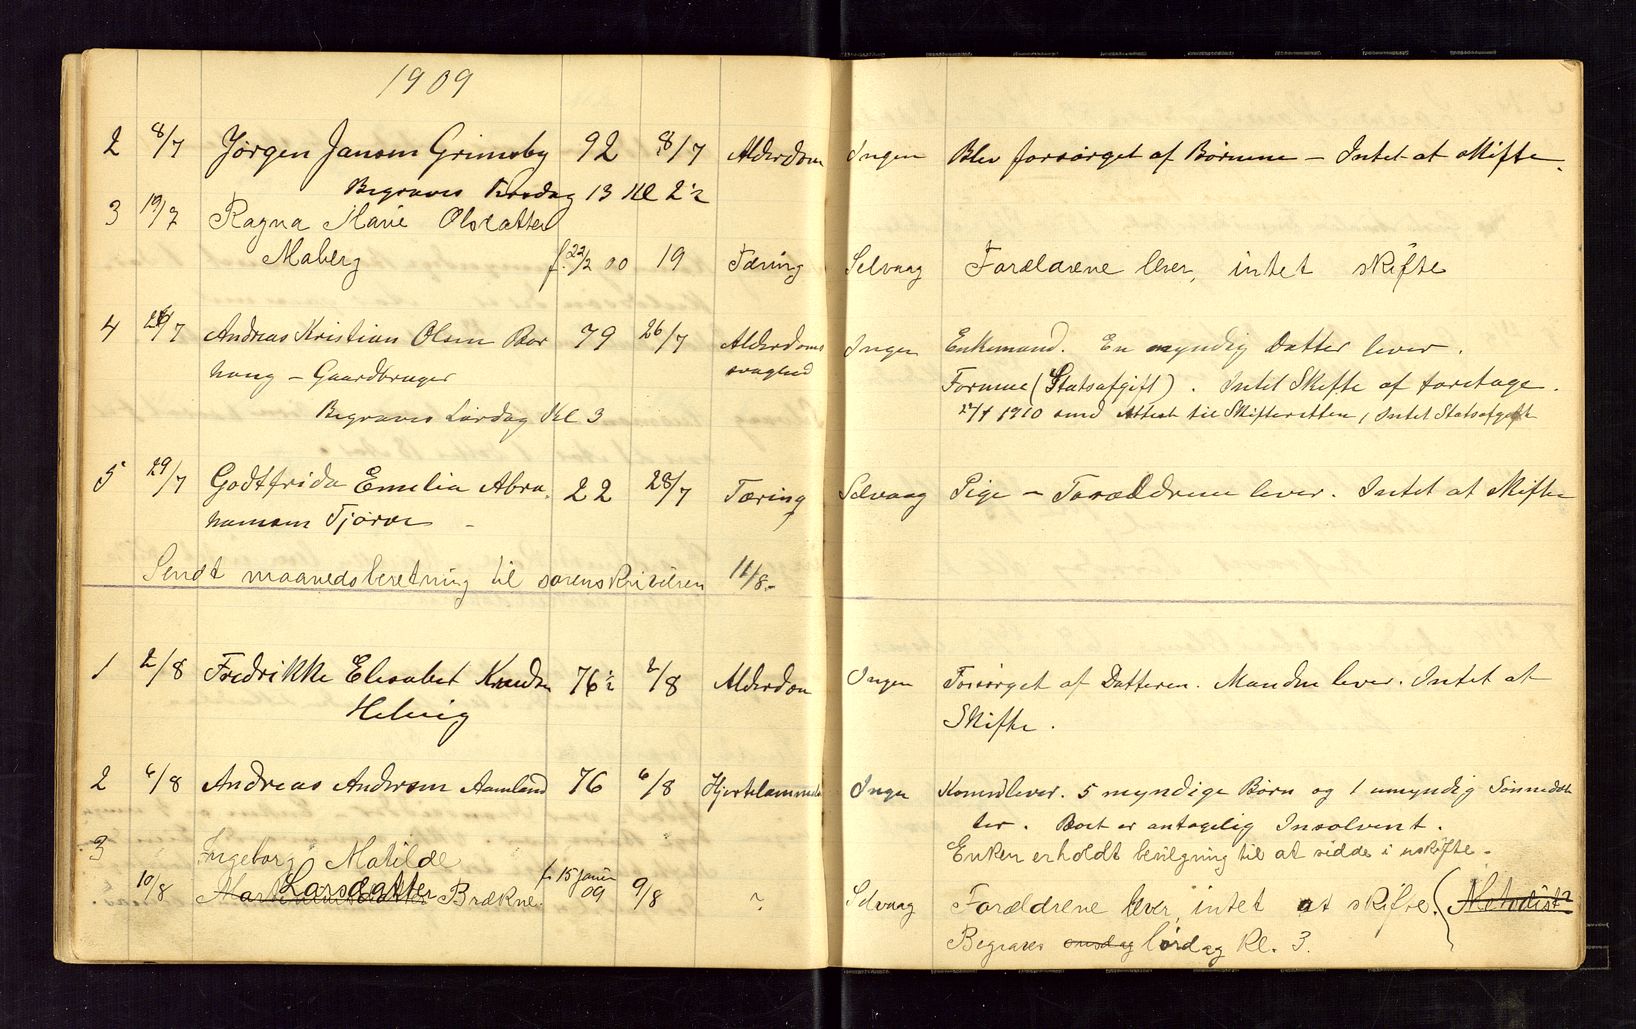 1909
2 8/7 Jørgen Jansen Grimsby 92 8/7 Alderdom Ingen Blev forsørget af Børnene – Intet at skifte.
Begraves Tirsdag 13 Kl 2½
3 19/7 Ragna Marie Olsdatter
Maberg f. 22/2 00 19 Tæring Selvaag Forældrene lever, intet skifte
4 26/7 Andreas Kristian Olsen Bor 79 26/7 Alderdoms Ingen Enkemand. En myndig Datter lever.
haug – Gaardbruger svaghed Formue (Statsafgift). Intet Skifte af foretage.
Begraves Lørdag Kl 3 27/4 1910 send Attest til Skifteretten, Intet Statsafgift
5 29/7 Godtfrida Emelia Abra 22 28/7 Tæring Selvaag Pige – Forældrene lever. Intet at skifte
hamsen Tjørve –
Sendt maanedsberetning til sorenskriveren 11/8.-
1 2/8 Fredrikke Elisabet Knudsen 76½ 2/8 Alderdom Ingen Forsørget af Datteren. Manden lever. Intet at
Helvig Skifte.
2 6/8 Andreas Andersen Aamland 76 6/8 Hjertelammelse Ingen Konen lever. 5 myndige Børn og 1 umyndig Sønnedat
ter. Boet er antagelig Insolvent.
Enken erholdt bevilgning til at sidde i uskifte.
3 Ingeborg Matilde
10/8 Larsdatter Brækne. f. 15 januar 09 9/8 ? Selvaag Forældrene lever, intet at skifte. (Metodist?
Begraves onsdag lørdag kl. 3.